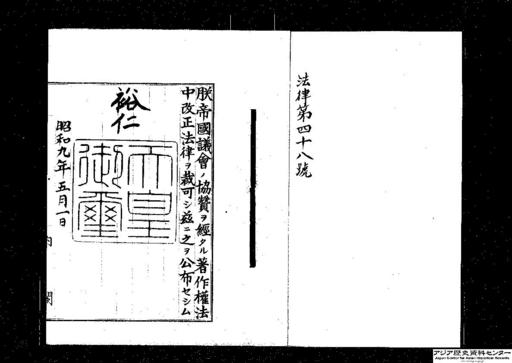 法律第四十八號
朕帝國議會ノ協贊ヲ經タル著作權法
中改正法律ヲ裁可シ茲ニ之ヲ公布セシム
裕仁
天皇
御璽
昭和九年五月一日
内閣
アジア歴史資料センター
Japan Center for Asian Historical Records